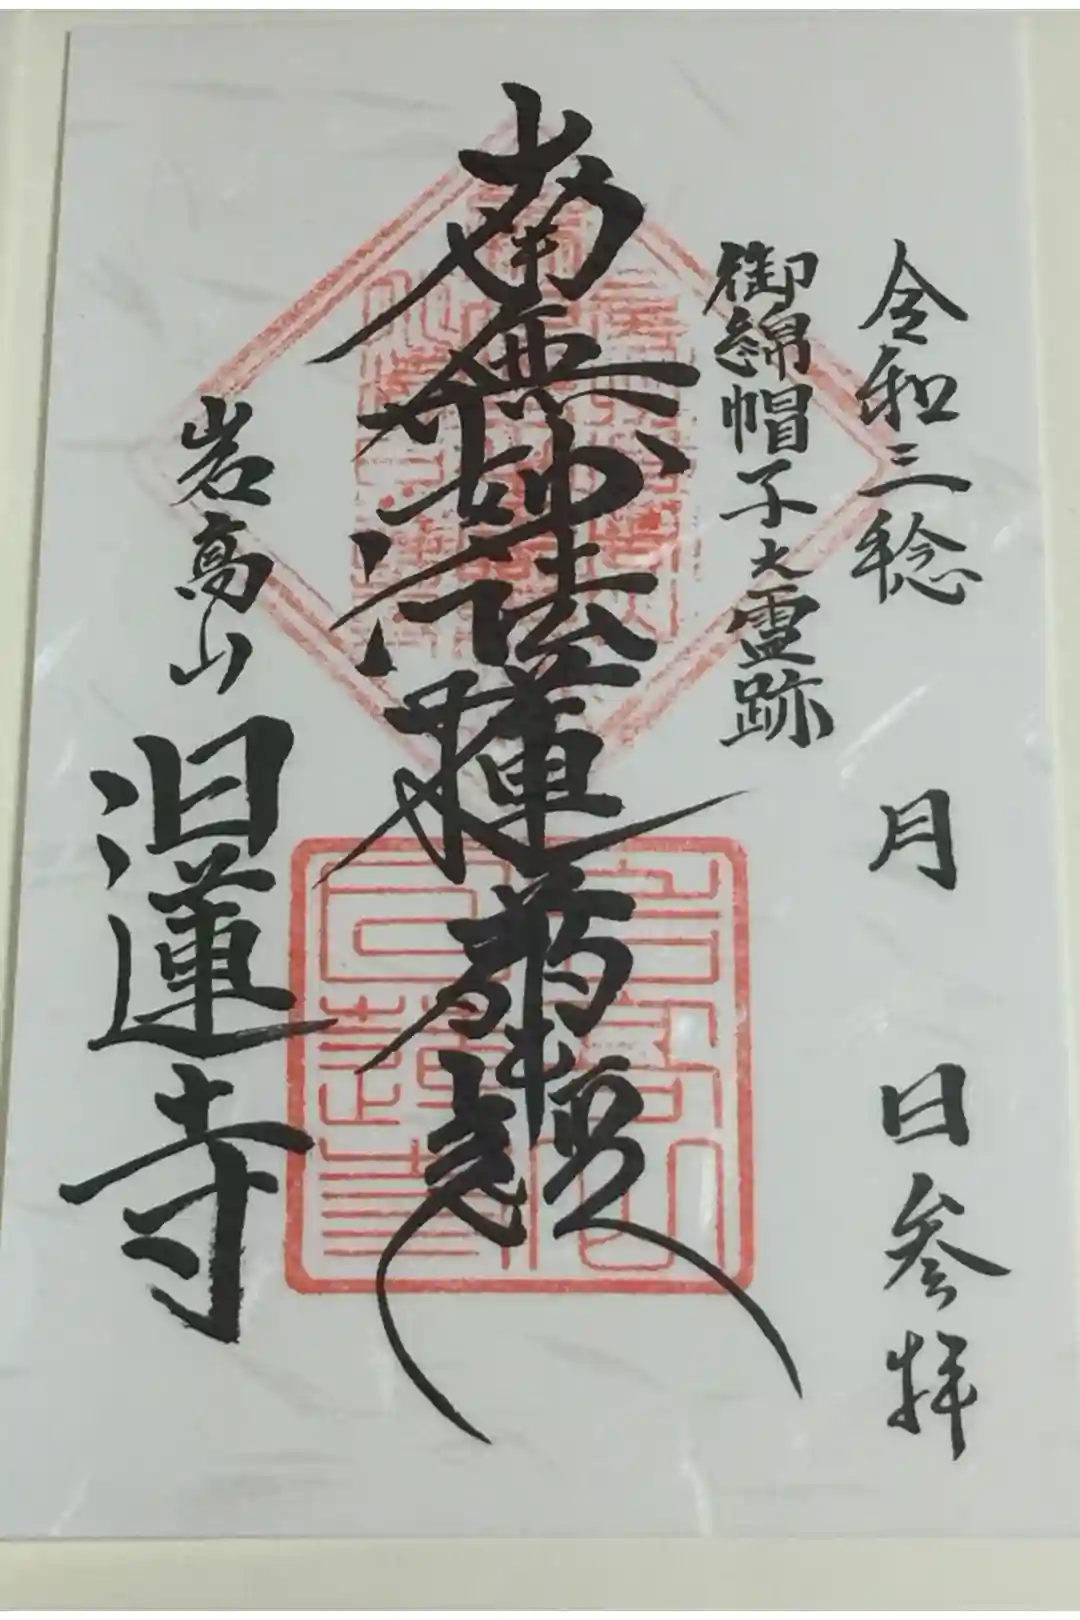 令和三稔 月 日参拝
御綿帽子大霊跡
南無妙法蓮華経
岩高山
日蓮寺